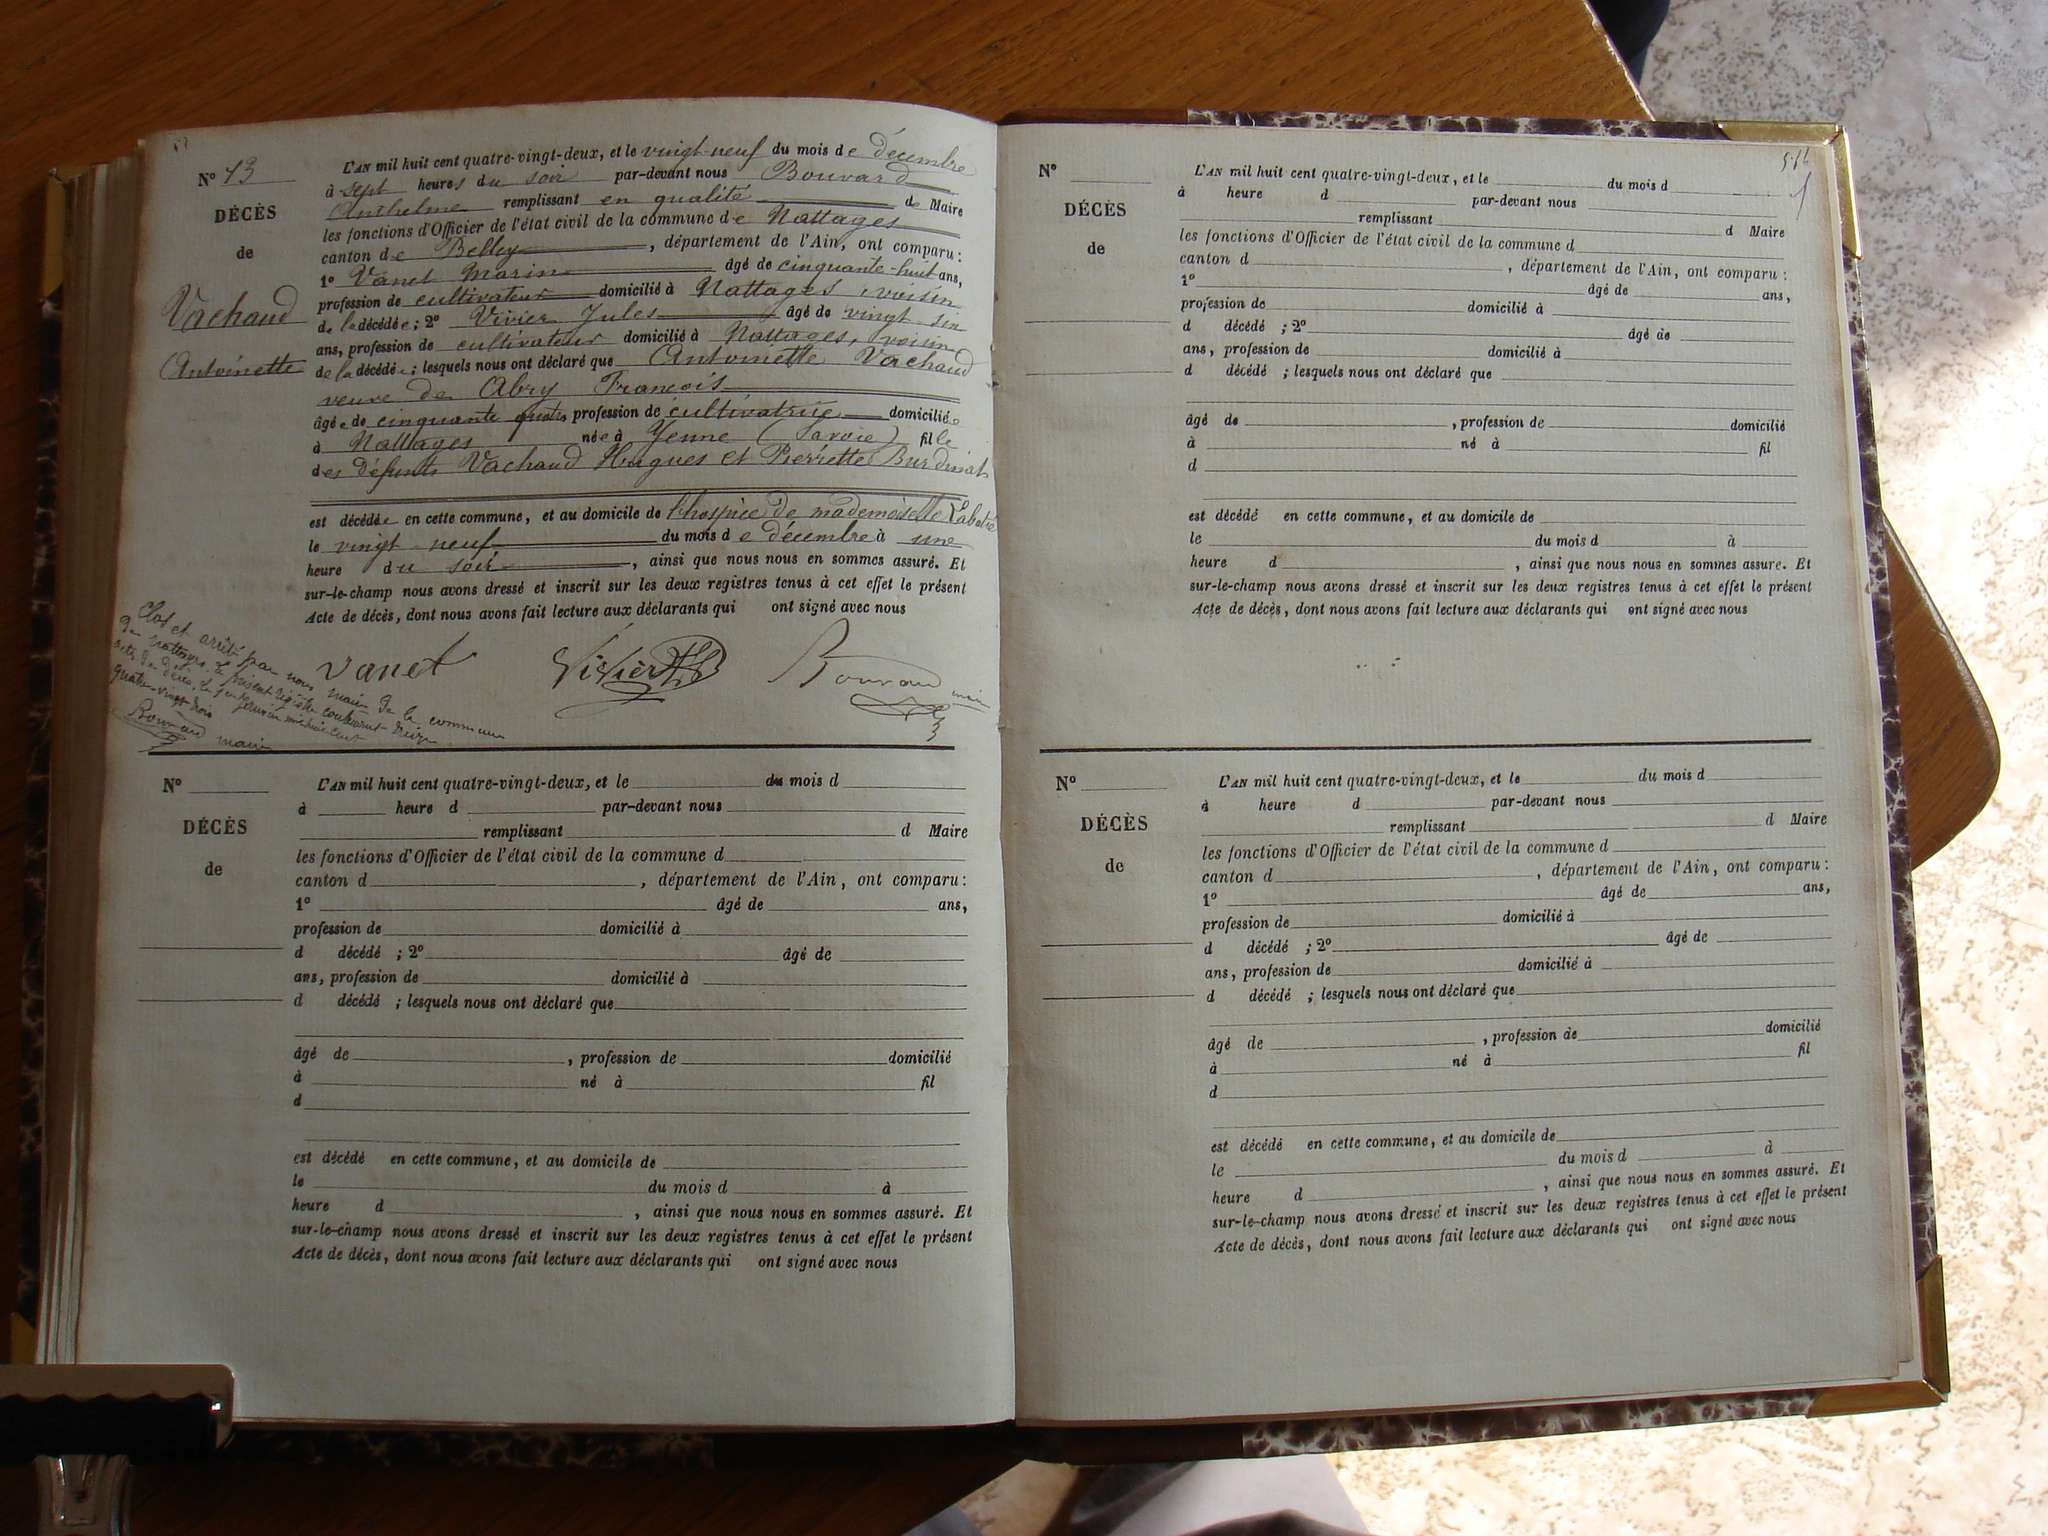 N° 13
DÉCÈS
de
Vachaud
Antoinette
L'AN mil huit cent quatre-vingt-deux, et le vingt-neuf du mois de décembre
à sept heures du soir par-devant nous Bouvard
Anthelme remplissant en qualité de Maire
les fonctions d'Officier de l'état civil de la commune de Nattages
canton de Belley, département de l'Ain, ont comparu:
1° Vanet Marin âgé de cinquante-huit ans,
profession de cultivateur domicilié à Nattages, voisin
de la décédée; 2° Vivier Jules âgé de vingt six
ans, profession de cultivateur domicilié à Nattages, voisin
de la décédée; lesquels nous ont déclaré que Antoinette Vachaud
veuve de Abry François
âgée de cinquante quatre profession de cultivatrice domiciliée
à Nattages née à Yenne (Savoie) fille
des défunts Vachaud Hugues et Pierrette
est décédée en cette commune, et au domicile de l'hospice de mademoiselle
le vingt neuf du mois de décembre à une
heure du soir, ainsi que nous nous en sommes assuré. Et
sur-le-champ nous avons dressé et inscrit sur les deux registres tenus à cet effet le présent
Acte de décès, dont nous avons fait lecture aux déclarants qui ont signé avec nous
Vanet Vivier Bouvard maire
Clos et arrêté par nous maire de la commune
de Nattages, le présent registre contenant treize
actes de décès, le premier janvier mil huit cent
quatre-vingt trois
Bouvard maire
N°
DÉCÈS
de
L'AN mil huit cent quatre-vingt-deux, et le du mois d
à heure d par-devant nous
remplissant d Maire
les fonctions d'Officier de l'état civil de la commune d
canton d , département de l'Ain, ont comparu:
1° âgé de ans,
profession de domicilié à
d décédé ; 2° âgé de
ans, profession de domicilié à
d décédé ; lesquels nous ont déclaré que
âgé de , profession de domicilié
à né à fil
d
est décédé en cette commune, et au domicile de
le du mois d à
heure d , ainsi que nous nous en sommes assuré. Et
sur-le-champ nous avons dressé et inscrit sur les deux registres tenus à cet effet le présent
Acte de décès, dont nous avons fait lecture aux déclarants qui ont signé avec nous
N°
DÉCÈS
de
L'AN mil huit cent quatre-vingt-deux, et le du mois d
à heure d par-devant nous
remplissant d Maire
les fonctions d'Officier de l'état civil de la commune d
canton d , département de l'Ain, ont comparu:
1° âgé de ans,
profession de domicilié à
d décédé ; 2° âgé de
ans, profession de domicilié à
d décédé ; lesquels nous ont déclaré que
âgé de , profession de domicilié
à né à fil
d
est décédé en cette commune, et au domicile de
le du mois d à
heure d , ainsi que nous nous en sommes assuré. Et
sur-le-champ nous avons dressé et inscrit sur les deux registres tenus à cet effet le présent
Acte de décès, dont nous avons fait lecture aux déclarants qui ont signé avec nous
N°
DÉCÈS
de
L'AN mil huit cent quatre-vingt-deux, et le du mois d
à heure d par-devant nous
remplissant d Maire
les fonctions d'Officier de l'état civil de la commune d
canton d , département de l'Ain, ont comparu:
1° âgé de ans,
profession de domicilié à
d décédé ; 2° âgé de
ans, profession de domicilié à
d décédé ; lesquels nous ont déclaré que
âgé de , profession de domicilié
à né à fil
d
est décédé en cette commune, et au domicile de
le du mois d à
heure d , ainsi que nous nous en sommes assuré. Et
sur-le-champ nous avons dressé et inscrit sur les deux registres tenus à cet effet le présent
Acte de décès, dont nous avons fait lecture aux déclarants qui ont signé avec nous